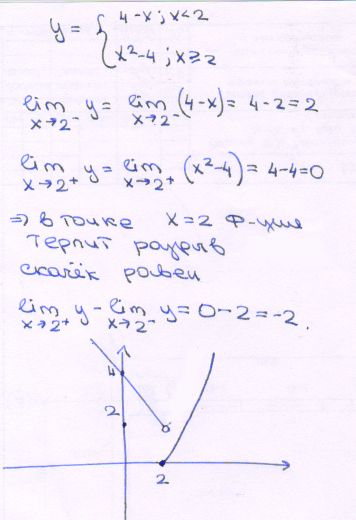 y = { 4-x ; x<2
x²-4 ; x≥2
lim x→2⁻ y = lim x→2⁻ (4-x) = 4-2=2
lim x→2⁺ y = lim x→2⁺ (x²-4) = 4-4=0
⇒ в точке x=2 ф-ция
терпит разрыв
скачёк равен
lim x→2⁺ y - lim x→2⁻ y = 0-2=-2.
4
2
2